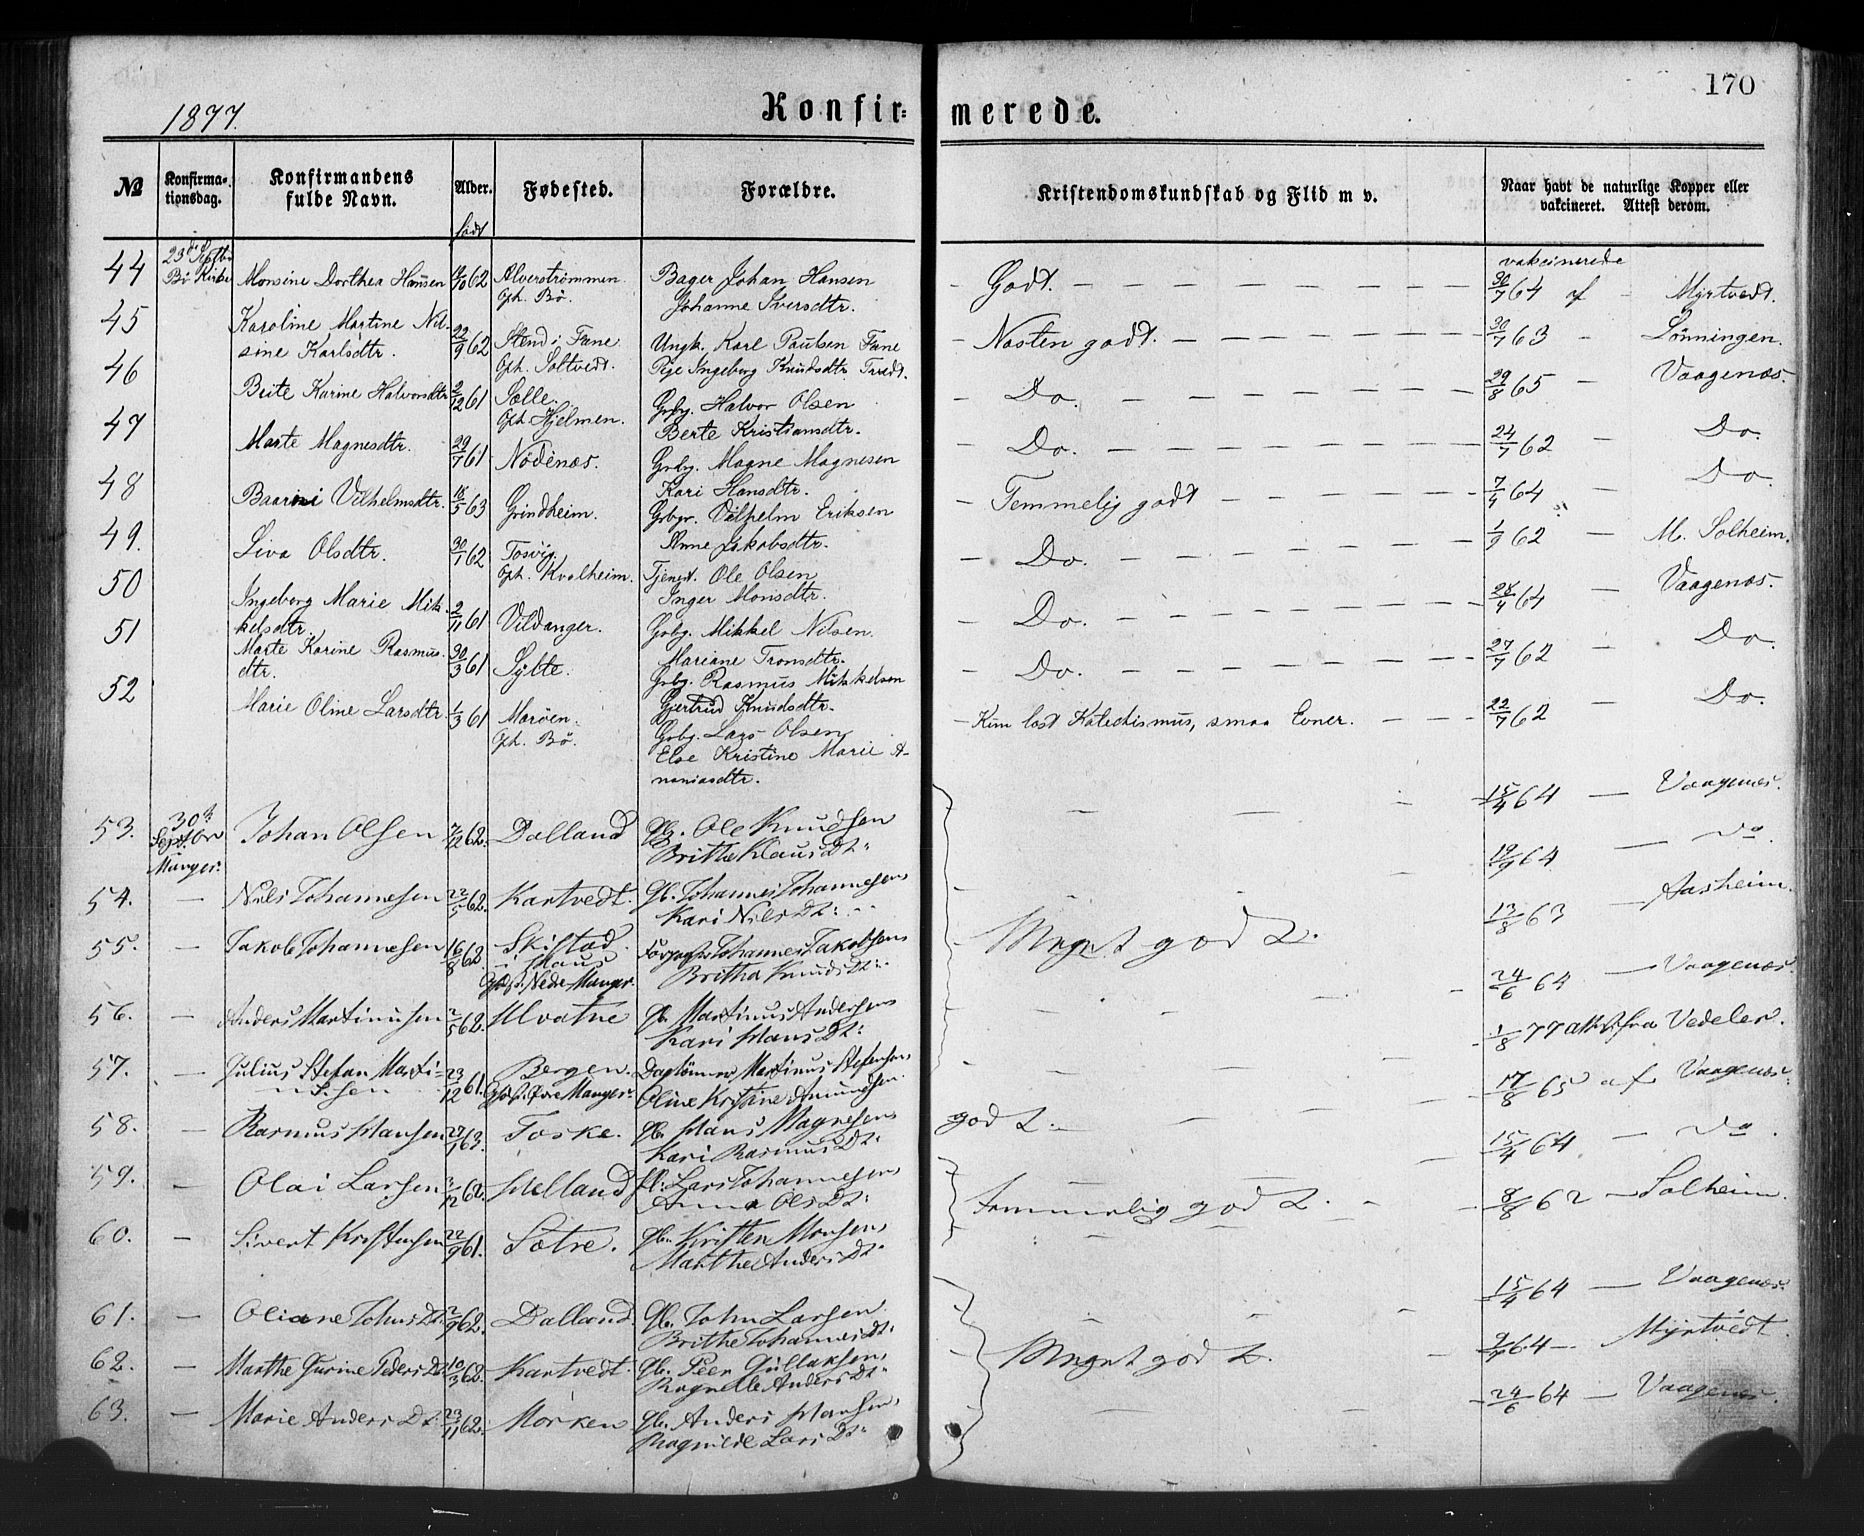 170
1877.
Konfirmerede.
№ Konfirmationsdag. Konfirmandens fulde Navn. Alder. Fødested. Forældre. Kristendomskundskab og Flid m v. Naar havt de naturlige Kopper eller vakcineret. Attest derom.
født
vakcinerede
44 23d Septbr Bø Kirke Monsine Dorthea Hansen 62 Alverstrømmen Oph. Bø. Bager Johan Hansen Johanne Iversdtr. - Godt. 30/7 64 af - Myrtvedt.
45 Karoline Martine Nilsine Karlsdtr. 22/9 62 Stend i Fane Oph. Soltvedt. Ungk. Karl Paulsen Fane Pige Ingeborg Knudsdtr. - Næsten godt. 30/7 63 - Lønningen.
46 Brite Karine Halvorsdtr 2/12 61 Sælle. Oph. Hjelmen. Grbg. Halvor Olsen Berte Kristiansdtr. - Do. 29/8 65 - Vaagenæs.
47 Marte Magnesdtr. 29/7 61 Nødenæs. Grbg. Magne Magnesen Kari Hansdtr. - Do. 24/7 62 - Do.
48 Vilhelmsdtr. 18/5 63 Grindheim. Grbgr. Vilhelm Eriksen Anne Jakobsdtr. - Temmelig godt 64 - Do.
49. Siva Olsdtr. 30/1 62 Tosvig. Oph. Kvalheim. Tjenest. Ole Olsen Inger Monsdtr. - Do. 1/9 62 - M. Solheim.
50 Ingeborg Marie Mikkelsdtr. 2/11 61 Vildanger. Grbg. Mikkel Nilsen. Mariane Tronsdtr. - Do. 28/4 64 - Vaagenæs.
51 Marte Karine Rasmusdtr. 30/3 61 Sylte. Grbg. Rasmus Mikkelsen Gjertrud Knudsdtr. - Do. 27/7 62 - Do.
52 Marie Oline Larsdtr. 1/3 61 Marøen. Oph. Bø. Grbg. Lars Olsen Else Kristine Marie Ananiasdtr. - Kun læst Katechismus, smaa Evner. 22/7 62 - Do.
53. 30d Septbr Manger: Johan Olsen 7/12 62. Dalland Gb. Ole Knudsen Brithe KlausDt: 15/4 64 - Vaagenæs.
54. - Nils Johannesen 22/5 62. Kartvedt. Gb. Johannes Johannesen Kari NilsDt: 19/9 64 - do
55. - Jakob Johannesen 16/8 62 Skifstad i Haus Nedre Manger. Johannes Jakobsen Britha KnudsDt: Meget godt. 13/8 63 - Aasheim.
56. - Anders Martinusen 2/5 62. Alvatne Gb. Martinus Andersen Kari HansDt: 24/6 64 - Vaagenæs.
57. - Julius Stefan Martinusen 23/12 61. Bergen. Øvre Manger: Daglønner Martinus Stefansen Oline Kristine Amundsen 1/8 77 attest fra Vedeler.
58. - Rasmus Hansen 27/1 63. Toske. Gb. Hans Magnesen Kari RasmusDt: godt. 17/8 65 af Vaagenæs.
59. - Olai Larsen 3/12 62. Helland Lars Johannesen Anna OlsDt: Temmelig godt. 15/4 64 - do.
60. - Sivert Kristensen 22/9 61. Sætre. Gb. Kristen Monsen Marthe AndersDt: 8/8 62 - Solheim.
61. - Oliane JohnsDt: 2/9 62. Dalland. Gb. John Larsen Brithe JohannesDt: 15/4 64 - Vaagenæs.
62. - Marthe Gurine PedersDt. 10/3 62. Kartvedt. Gb. Peer Gullaksen Ragnelle AndersDt: Meget godt. 64 - Myrtvedt.
63. - Marie AndersDt: 23/11 62. Morken Gb. Anders Hansen Ragnilde LarsDt: 24/6 64 - Vaagenæs.